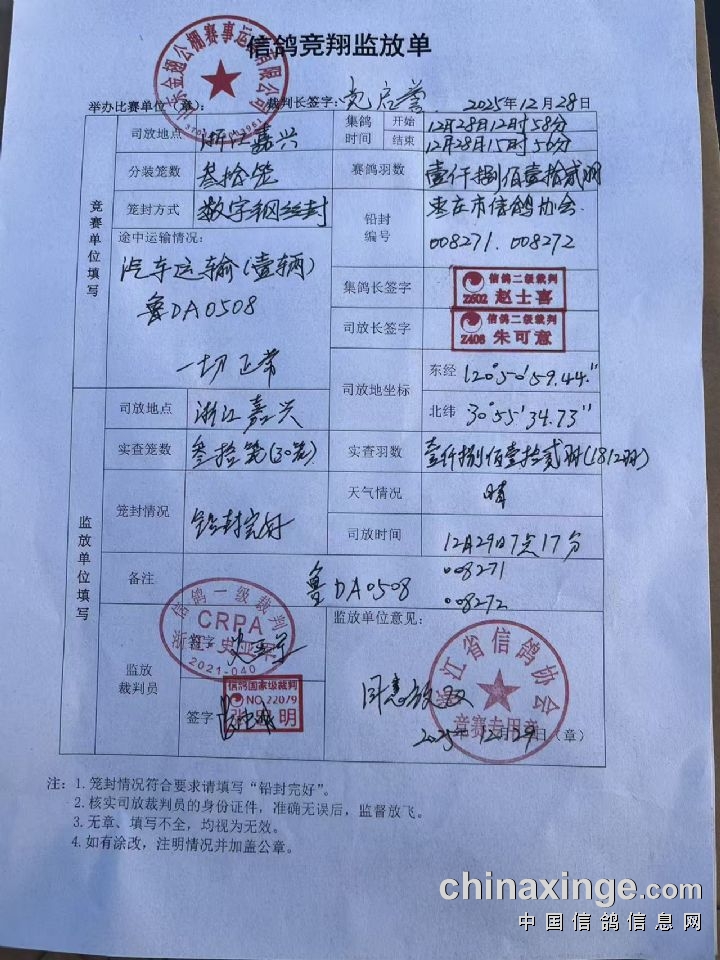 信鸽竞翔监放单
山东金翅公棚赛事运 有限公司
举办比赛单位(章): 裁判长签字: 2025年12月28日
竞赛单位填写
司放地点 浙江嘉兴 集鸽时间 开始 12月28日12时58分
结束 12月28日15时56分
分装笼数 叁拾笼 赛鸽羽数 壹仟捌佰壹拾贰羽
笼封方式 数字钢丝封 铅封编号 枣庄市信鸽协会
008271.008272
途中运输情况:
汽车运输(壹辆)
鲁DA0508
一切正常
集鸽长签字 信鸽二级裁判 Z602 赵士喜
司放长签字 信鸽二级裁判 Z406 朱可意
司放地坐标 东经 120°50′59.44″
北纬 30°55′34.73″
监放单位填写
司放地点 浙江嘉兴
实查笼数 叁拾笼(30笼) 实查羽数 壹仟捌佰壹拾贰羽(1812羽)
笼封情况 铅封完好 天气情况 晴
司放时间 12月29日7点17分
备注 鲁DA0508 008271
008272
监放裁判员
信鸽一级裁判
CRPA
签字:
2021-040
信鸽国家级裁判
NO.22079
签字
监放单位意见:
同意放飞
浙江省信鸽协会
竞赛专用章
2025年12月29日(章)
注: 1. 笼封情况符合要求请填写“铅封完好”。
2. 核实司放裁判员的身份证件,准确无误后,监督放飞。
3. 无章、填写不全,均视为无效。
4. 如有涂改,注明情况并加盖公章。
chinaxinge.com
中国信鸽信息网